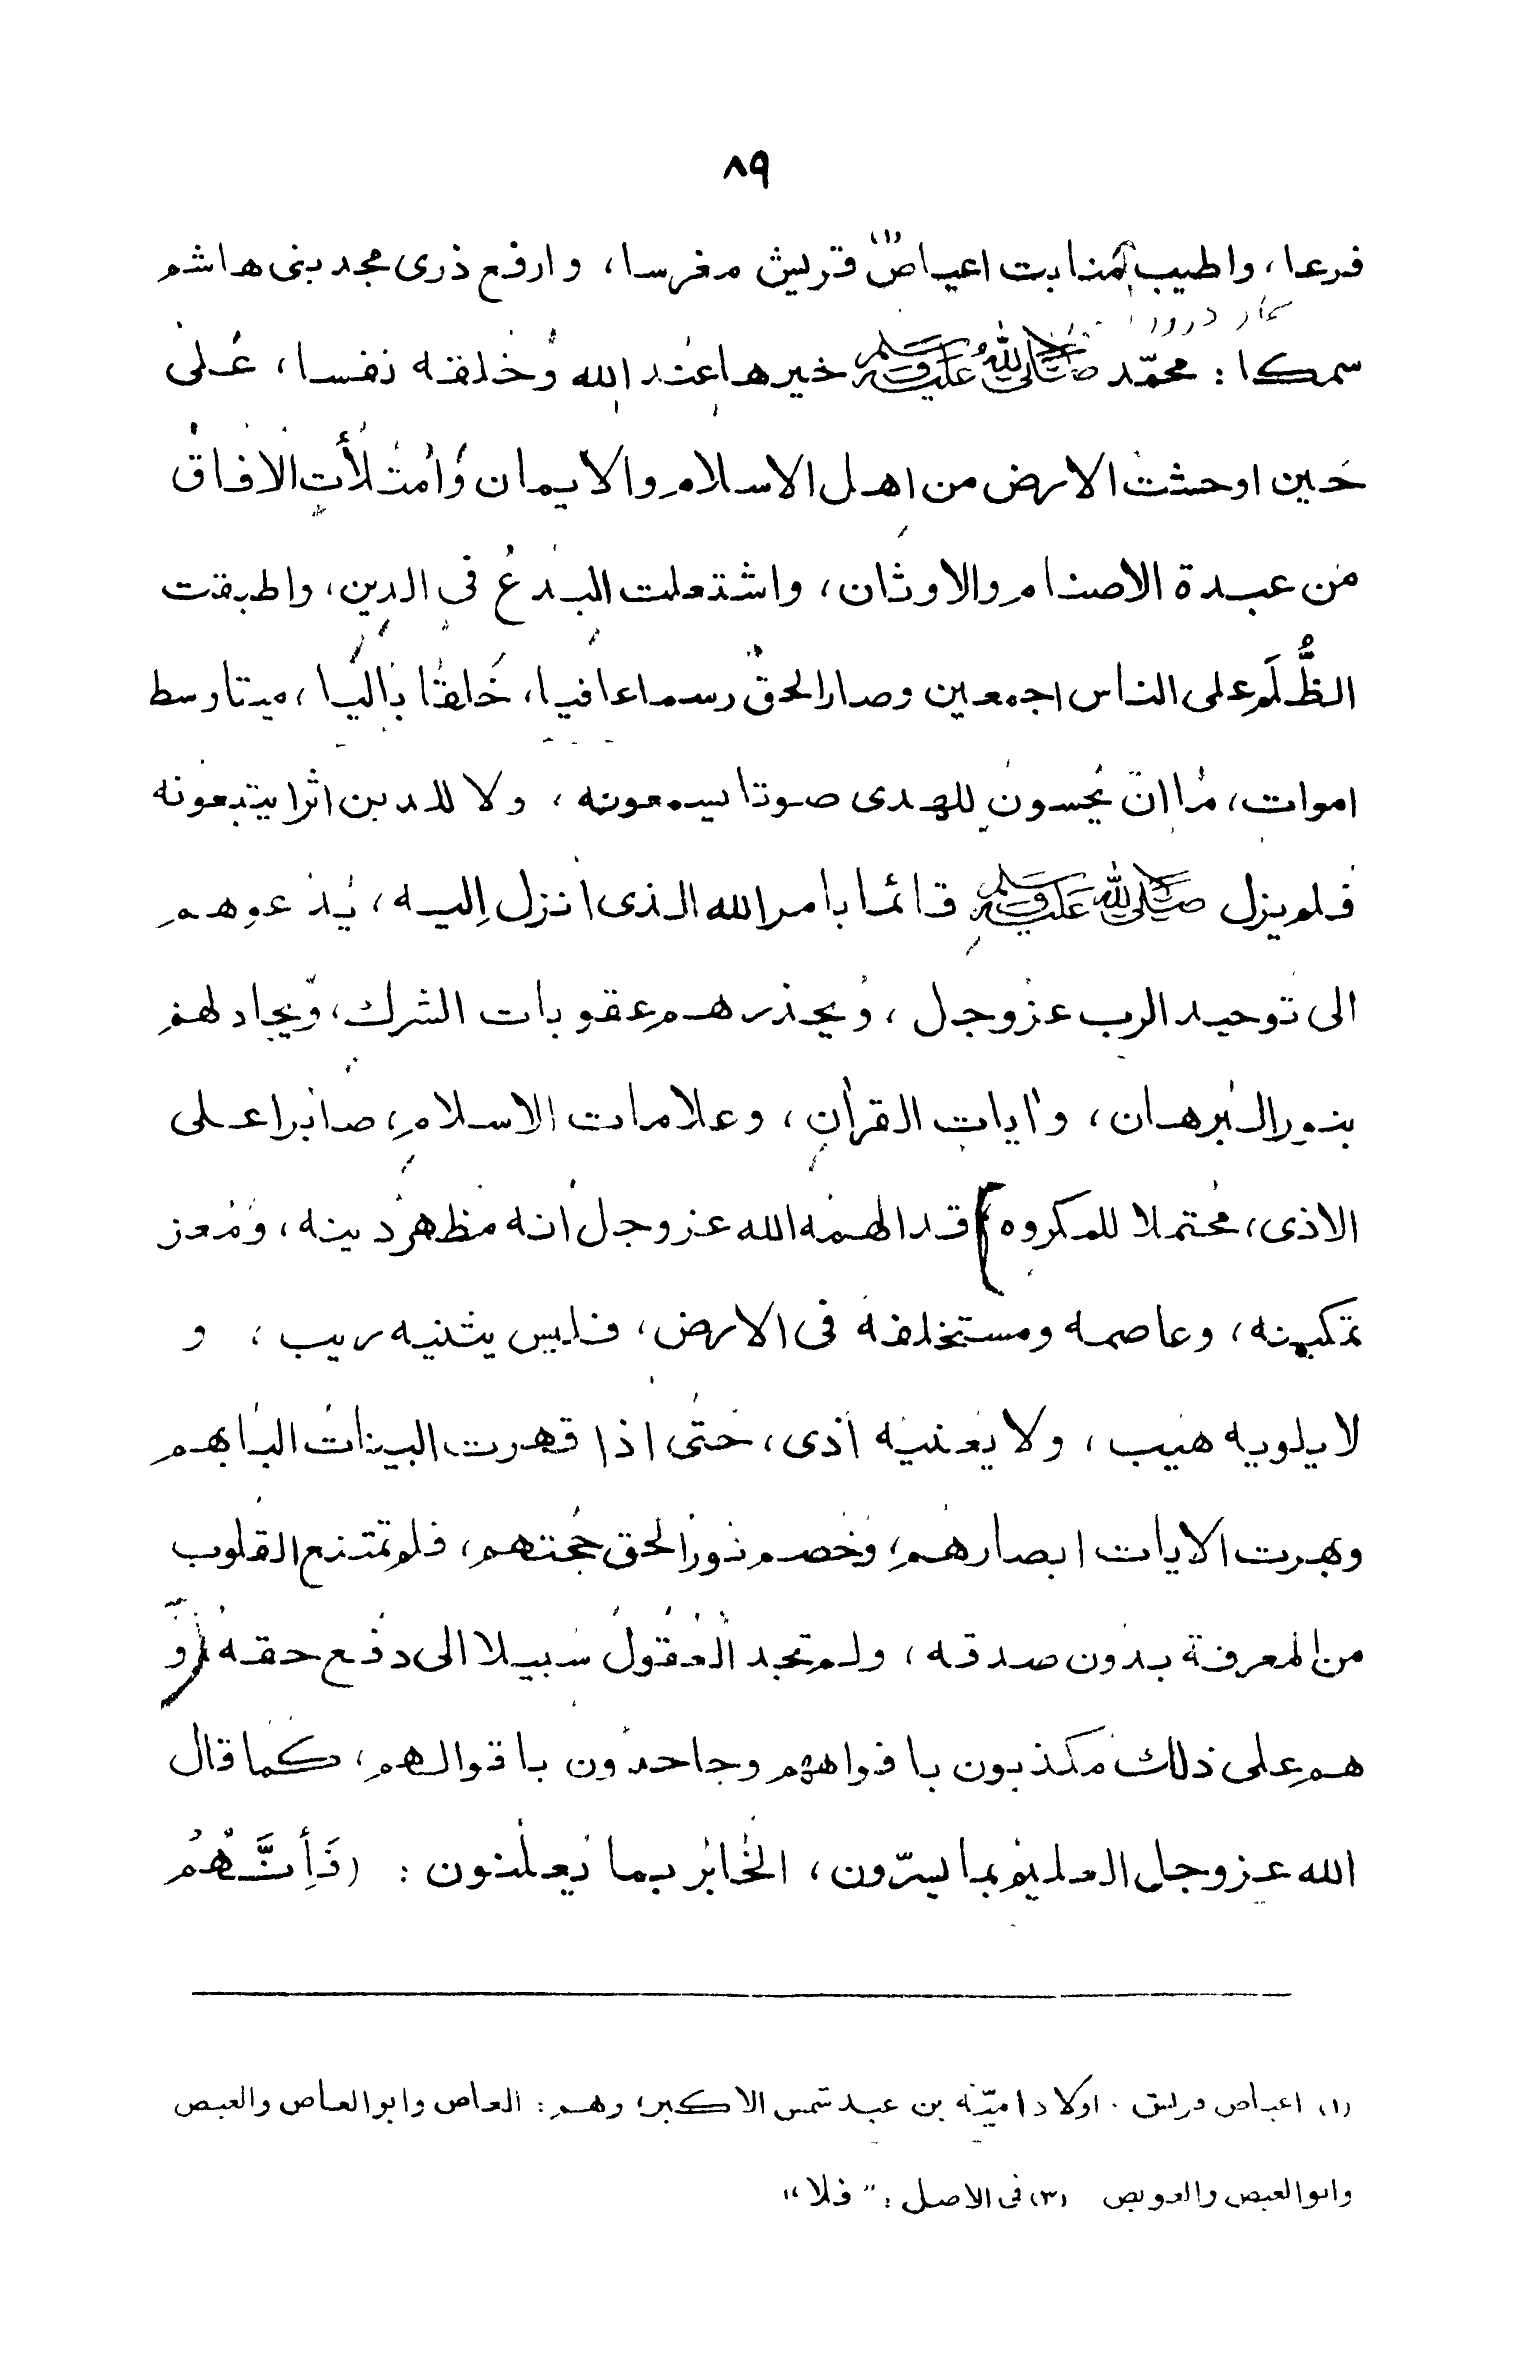 ٨٩
فرعا، واطيب منابت اعياص (١) قريش مغرسا، وارفع ذرى مجد بنى هاشم
سمكا : محمّد صلى الله عليه وسلم خيرها عند الله وخلقه نفسا، على
حين اوحشت الارض من اهل الاسلام والايمان وامتلأت الافاق
من عبدة الاصنام والاوثان، واشتعلت البدع في الدين، واطبقت
الظُّلَم على الناس اجمعين وصار الحق رسما عافيا، خلقا باليا، ميتا وسط
اموات، ما ان يحسون للهدى صوتا يسمعونه، ولا للدين اثرا يتبعونه
فلم يزل صلى الله عليه وسلم قائما بامر الله الذى انزل إليه، يدعوهم
الى توحيد الرب عز وجل، ويحذرهم عقوبات الشرك، ويجادلهم
بنور البرهان، وايات القرأن، وعلامات الاسلام، صابرا على
الاذى، محتملا للمكروه قد الهمه الله عز وجل انه مظهر دينه، ومعز
تمكينه، وعاصمه ومستخلفه فى الارض، فليس يثنيه ريب، و
لا يلويه هيب، ولا يعنيه أذى، حتى اذا قهرت البينات البابهم
وبهرت الايات ابصارهم، وخصم نور الحق حجتهم، فلم تمتنع القلوب
من المعرفة بدون صدقه، ولم تجد العقول سبيلا الى دفع حقه و
هم على ذلك مكذبون بافواههم وجاحدون باقوالهم، كما قال
الله عز وجل العليم بما يسرّون، الخابر بما يعلنون : (فَأِنَّهُمْ
(١) اعياص قريش . اولاد اميّة بن عبد شمس الاكبر، وهم : العاص وابو العاص والعيص
وابو العيص والعويص (٣) فى الاصل : "فلا"